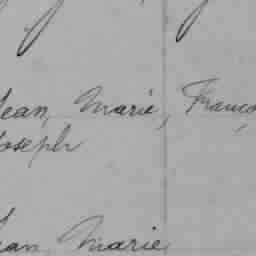 Jean, Marie, Franço
Joseph
Jean Marie,